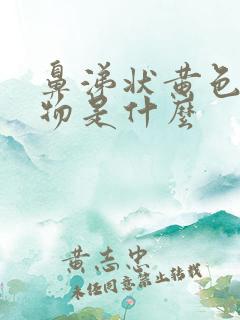 鼻涕状黄色
物是什麼
黄志忠
未经同意禁止转载